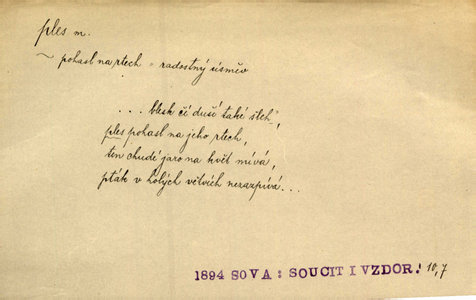 ples m.
~ pohasl na rtech = radostný úsměv
... blesk čí duší také šleh',
ples pohasl na jeho rtech,
ten chudé jaro na květ mívá,
pták v holých větvích nezazpívá...
1894 SOVA: SOUCIT I VZDOR: 10,7